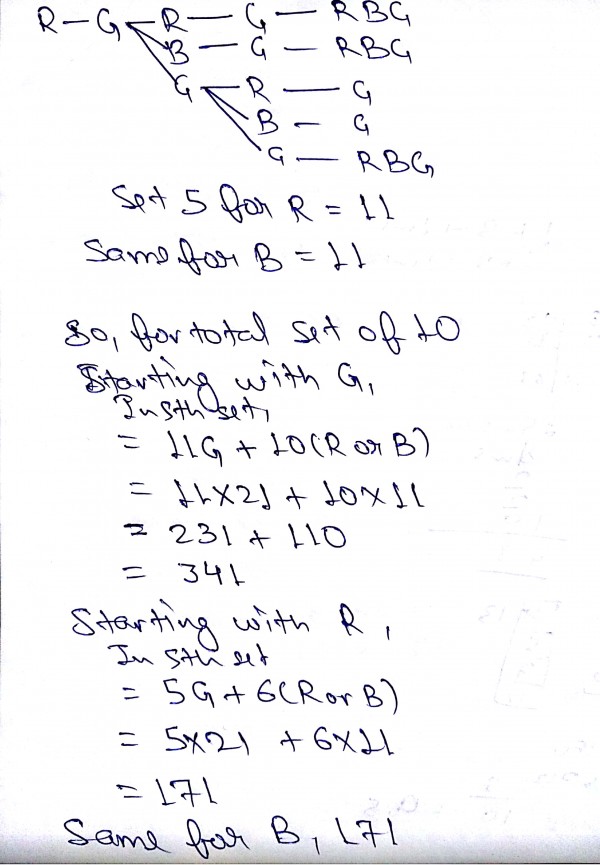 R - G - R - G - RBG
B - G - RBG
G - R - G
B - G
G - RBG
Set 5 for R = 11
Same for B = 11
So, for total set of 10
Starting with G,
In 5th set,
= 11G + 10(R or B)
= 11x21 + 10x11
= 231 + 110
= 341
Starting with R,
In 5th set
= 5G + 6(R or B)
= 5x21 + 6x11
= 171
Same for B, 171